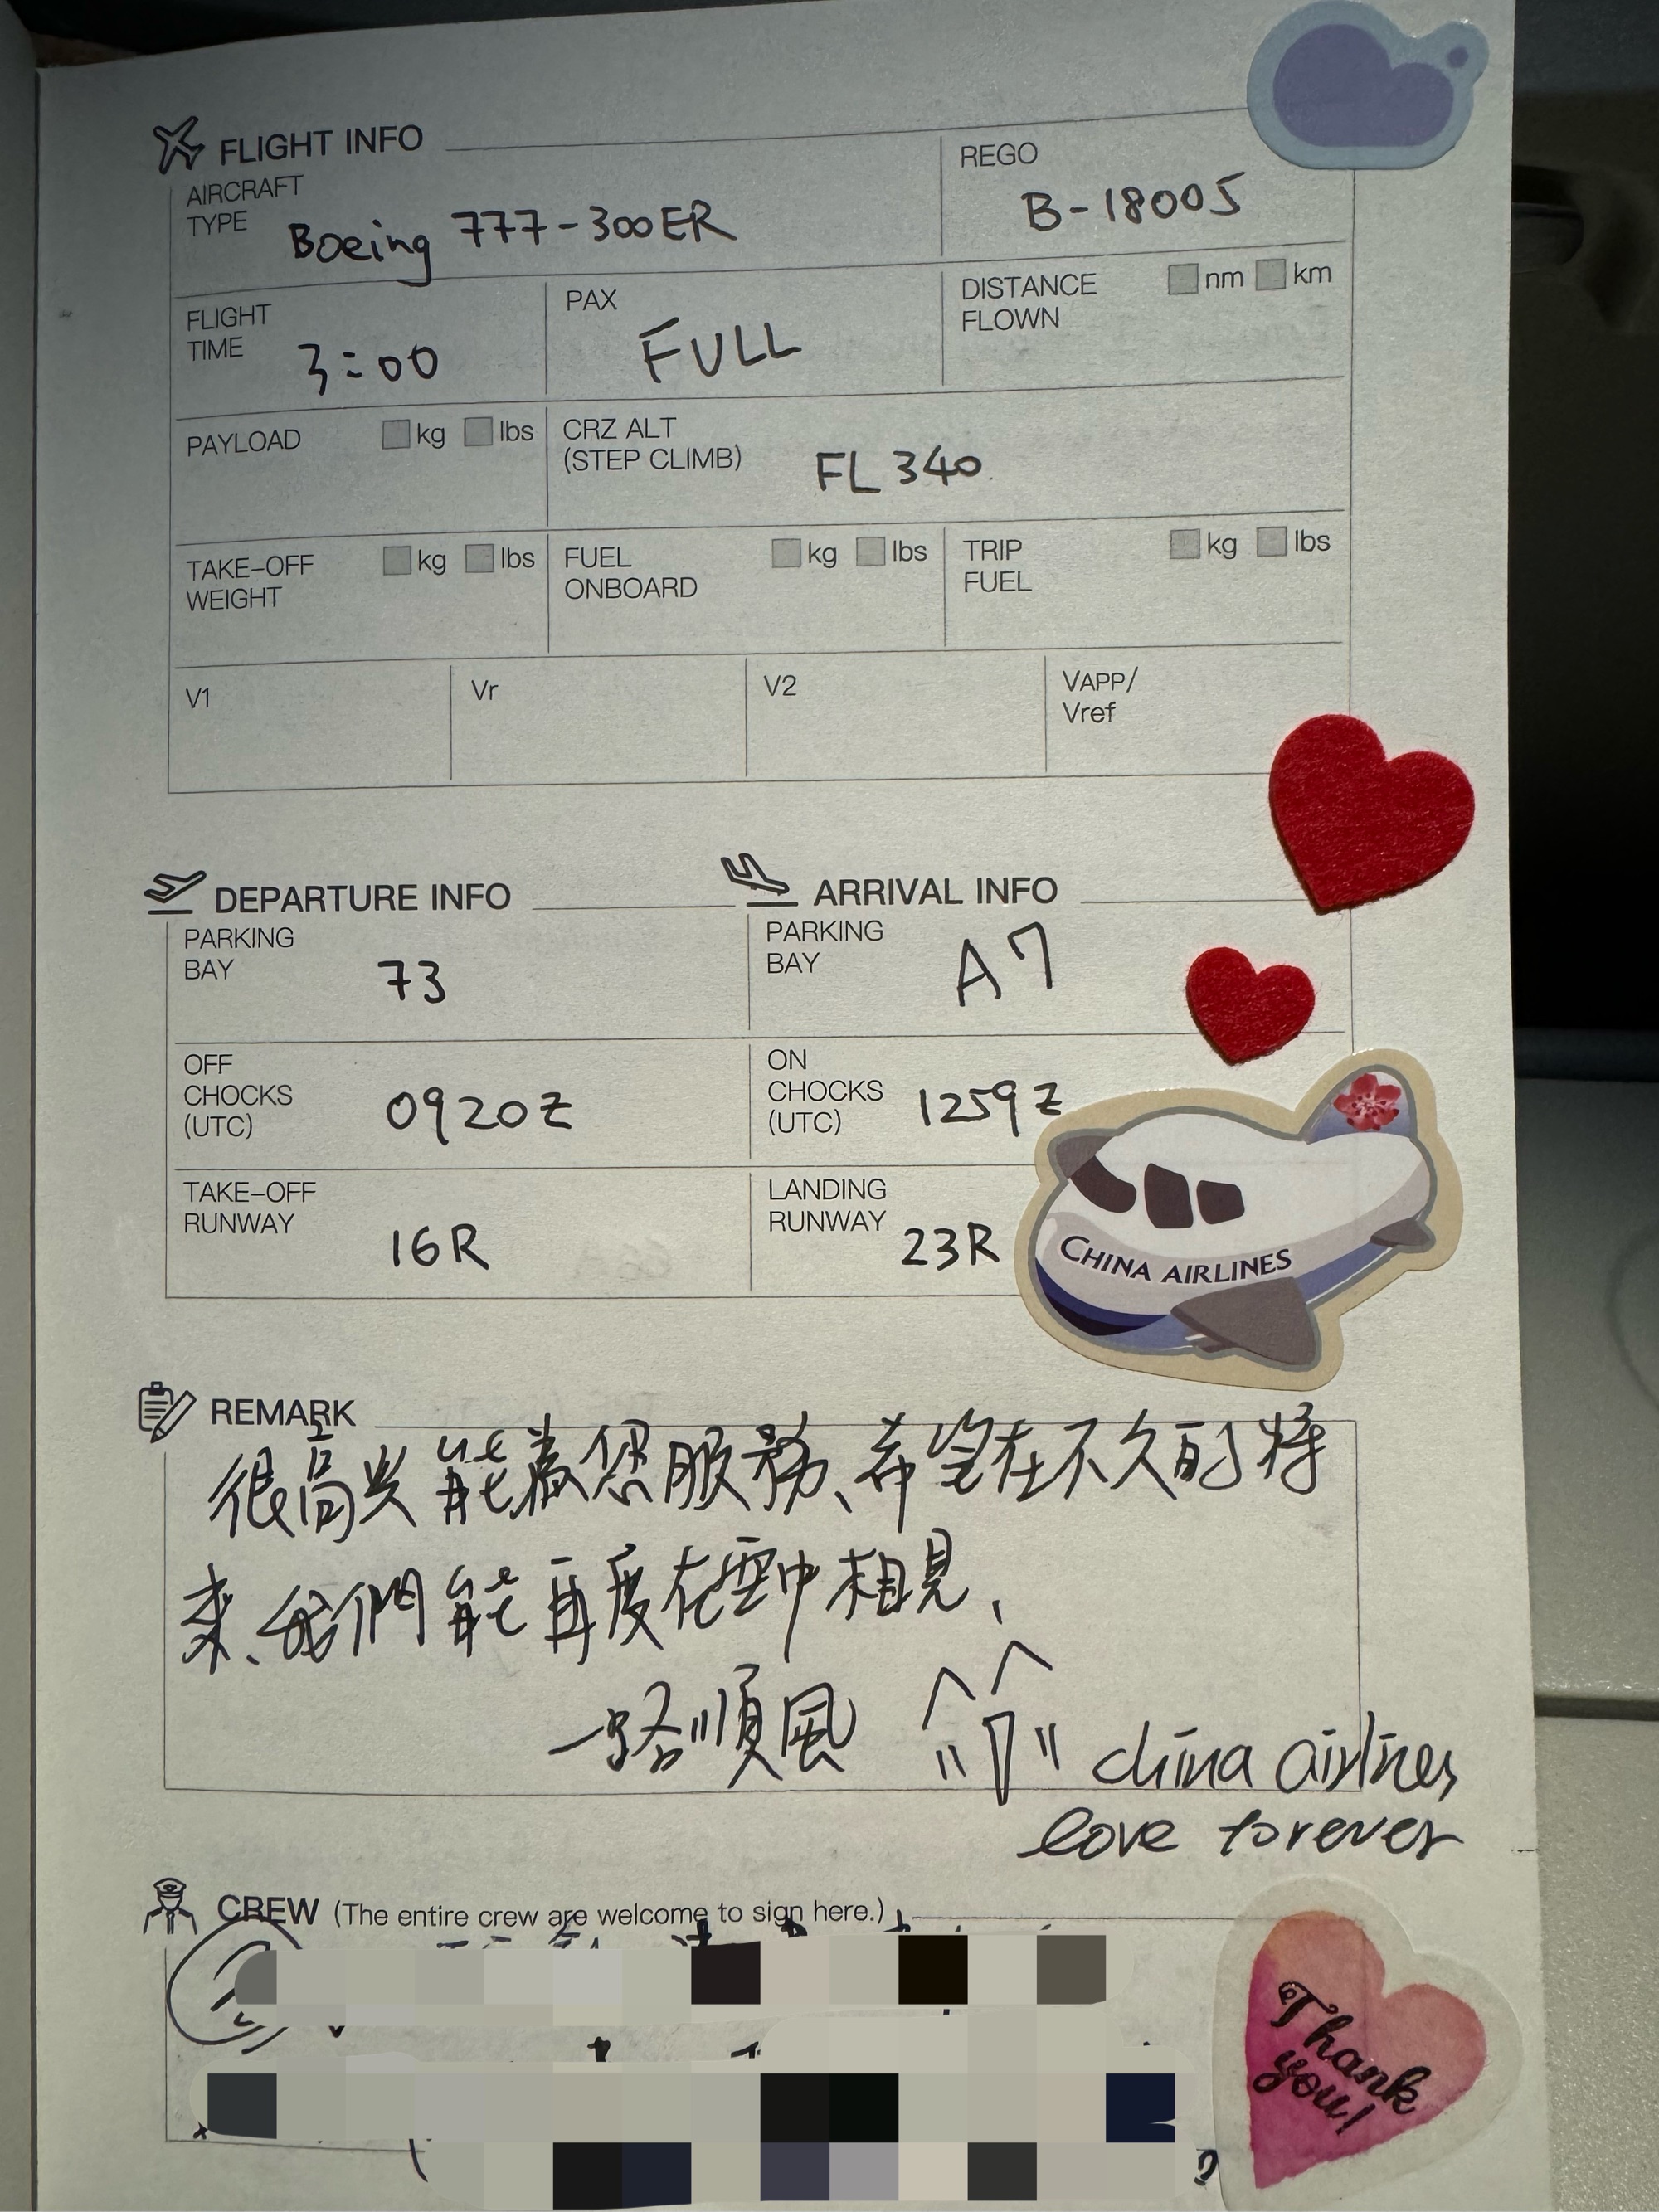 FLIGHT INFO
AIRCRAFT TYPE Boeing 777-300ER
REGO B-18005
FLIGHT TIME 3:00
PAX FULL
DISTANCE FLOWN nm km
PAYLOAD kg lbs
CRZ ALT (STEP CLIMB) FL340
TAKE-OFF WEIGHT kg lbs
FUEL ONBOARD kg lbs
TRIP FUEL kg lbs
V1
Vr
V2
VAPP/ Vref
DEPARTURE INFO
PARKING BAY 73
OFF CHOCKS (UTC) 0920Z
TAKE-OFF RUNWAY 16R
ARRIVAL INFO
PARKING BAY A7
ON CHOCKS (UTC) 1259Z
LANDING RUNWAY 23R
CHINA AIRLINES
REMARK
很高興能為您服務、希望在不久的將
來、我們能再度在空中相見、
一路順風
china airlines
love forever
CREW (The entire crew are welcome to sign here.)
Thank
you!